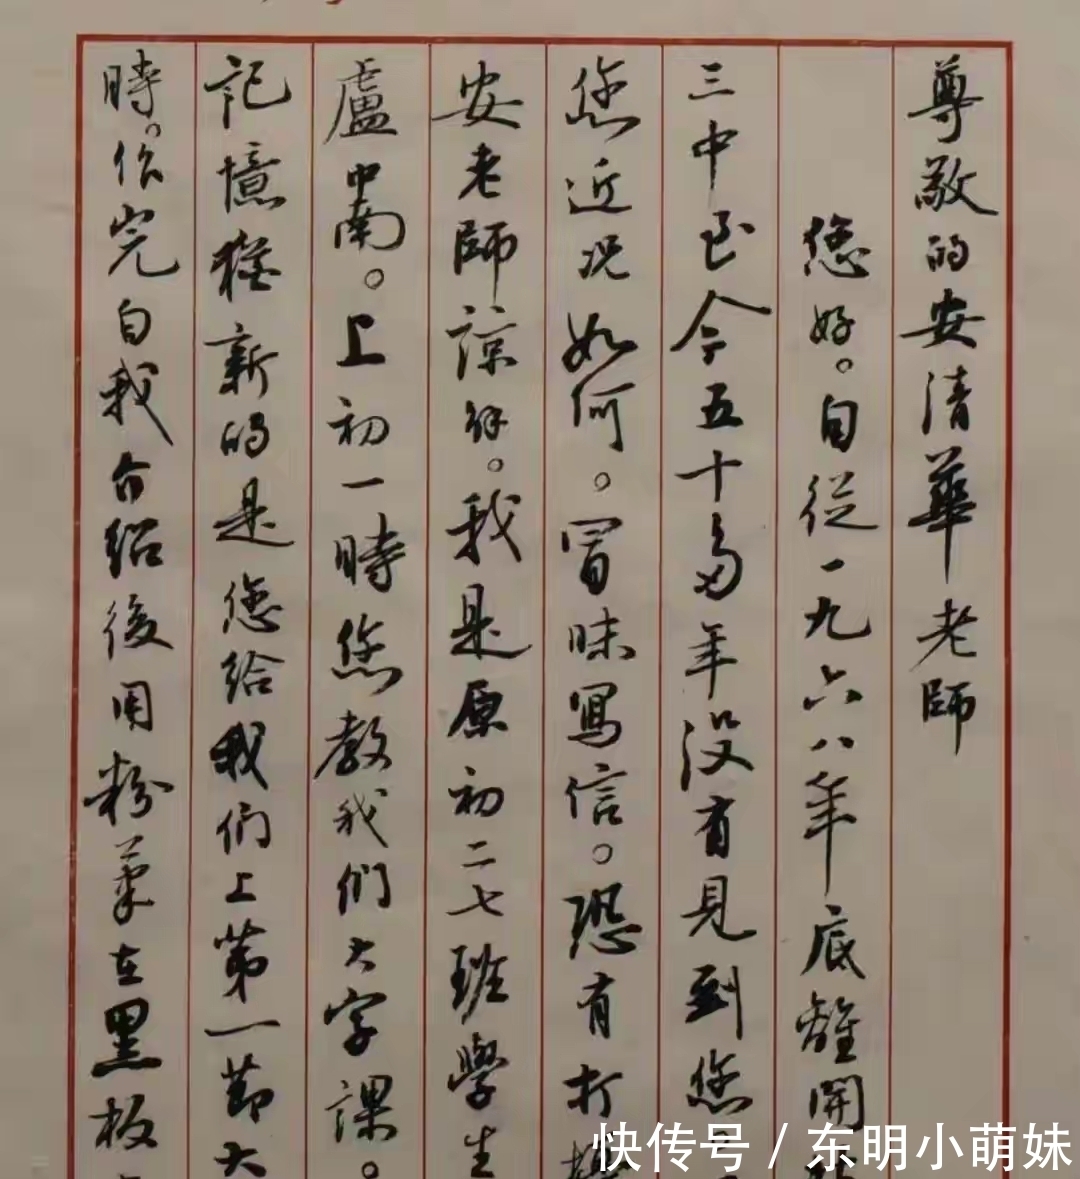 尊敬的安清華老師
您好。自從一九六八年底離開
三中至今五十多年没有見到您
您近况如何。冒昧寫信。恐有打擾
安老師諒解。我是原初二七班學生
盧中南。上初一時您教我們大字課。
記憶猶新的是您給我們上第一節大
時。作完自我介紹後用粉筆在黑板
快传号 / 东明小萌妹